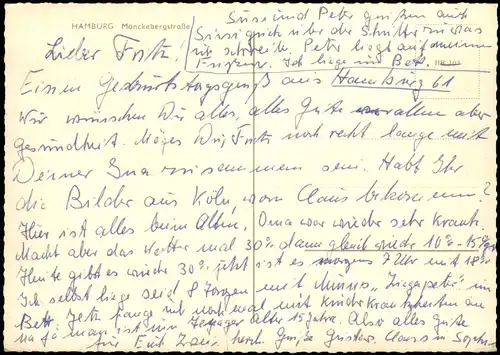 HAMBURG Mönckebergstraße
Susi und Peter grüßen auch
Susi guckt über die Schulter was
ich schreibe. Peter liegt auf meinen
Füßen. Ich liege im Bett.
Lieber Fritz!
Einen Geburtstagsgruß aus Hamburg 61
Wir wünschen Dir alles, alles Gute vor allem aber
Gesundheit. Möges Du Fritz noch recht lange mit
Deiner zusammem sein. Habt Ihr
die Bilder aus Köln, von Claus bekommen?
Hier ist alles beim Alten. Oma war wieder sehr krank.
Macht aber das Wetter mal 30° dann gleich wieder 10°-15°
Heute gibt es wieder 30° jetzt ist es morgens 7 Uhr mit 18°
Ich selbst liege seid 8 Tagen mit im
Bett. Jetzt fange ich noch mal mit Kinderkrankheiten an
na ja man ist ein Teenager Alter 15 Jahre. Also alles Gute
für Euch Zwei herzl. Grüße Claus u.